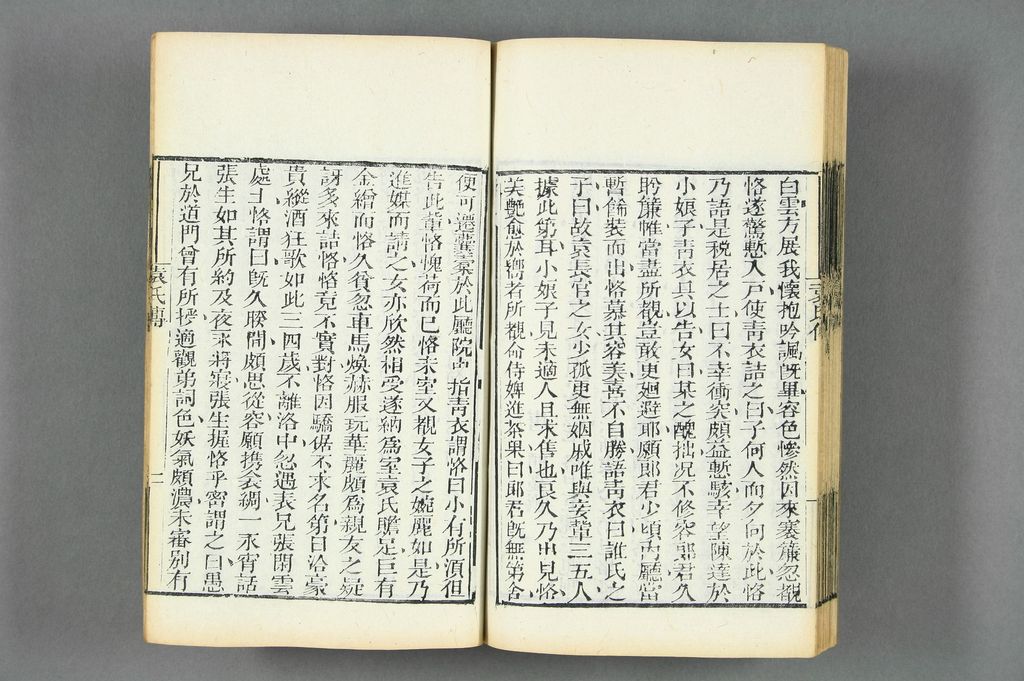 白雲方展我懷抱吟諷旣畢容色慘然因來褰簾忽覩
恪遂驚慙入戶使靑衣詰之曰子何人而夕向於此恪
乃語是税居之士曰不幸衝突頗益慙駭幸望陳達於
小娘子靑衣具以告女曰某之醜拙况不修容郭君久
盻簾帷當盡所覩豈敢更廻避耶願郎君少頃內廳當
暫餙裝而出恪慕其容美喜不自勝語靑衣曰誰氏之
子曰故袁長官之女少孤更無姻戚唯與妾輩三五人
據此第耳小娘子見未適人且求售也良久乃出見恪
美艷愈於嚮者所覩命侍婢進茶果曰郎君旣無第舍
便可遷囊槖於此廳院中指靑衣謂恪曰小有所湏但
告此輩恪愧荷而已恪未室又覩女子之婉麗如是乃
進媒而請之女亦欣然相受遂納爲室袁氏贍足巨有
金繒而恪久貧忽車馬煥赫服玩華麗頗爲親友之疑
訝多來詰恪恪竟不實對恪因驕倨不求名第日洽豪
貴縱酒狂歌如此三四歲不離洛中忽遇表兄張閑雲
處士恪謂曰旣久睽間頗思從容願携衾綢一永宵話
張生如其所約及夜永將寢張生握恪乎密謂之曰愚
兄於道門曾有所授適觀弟詞色妖氣頗濃未審別有
袁氏傳
二